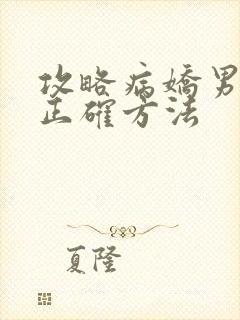 攻略病嬌男
正確方法
夏隆